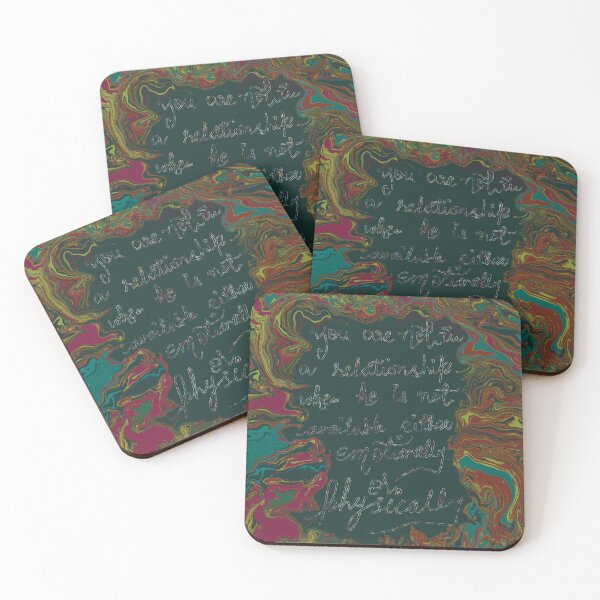 you are not in
a relationship
when he is not
either
you are not in
a relationship
when he is not
available either
emotionally
you are not in
a relationship
when he is not
available either
emotionally
or
physicall
you are not in
a relationship
when he is not
available either
emotionally
or
physically